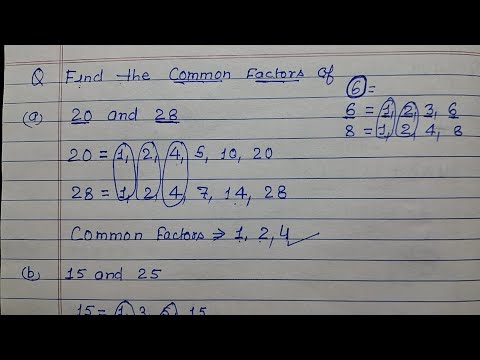 Q Find the Common Factors of
(a) 20 and 28
20 = 1, 2, 4, 5, 10, 20
28 = 1, 2, 4, 7, 14, 28
Common Factors ⇒ 1, 2, 4 ✓
6 =
6 = 1, 2, 3, 6
8 = 1, 2, 4, 8
(b) 15 and 25
15 = 1, 3, 5, 15